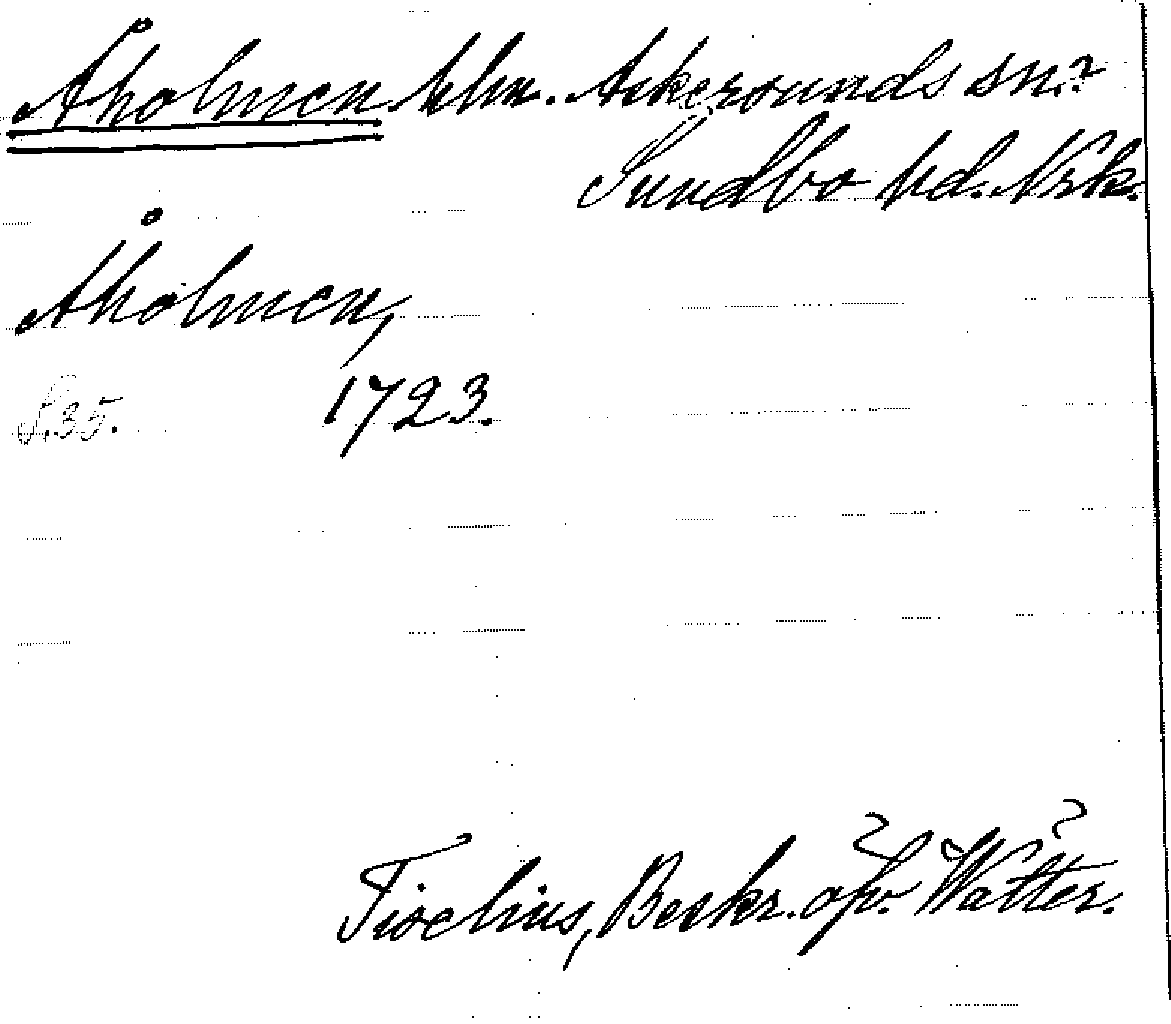 Åholmen hlm. Askersunds sn?
Sundbo hd. Nrk.
Åholmen,
S. 35. 1723.
Tiselius, Beskr. öfv. Wätter.